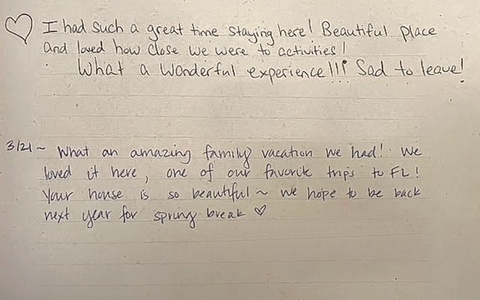 ♡ I had such a great time staying here! Beautiful place
and loved how close we were to activities!
What a wonderful experience!!! Sad to leave!
3/21~ What an amazing family vacation we had! We
loved it here, one of our favorite trips to FL!
Your house is so beautiful ~ we hope to be back
next year for spring break ♡